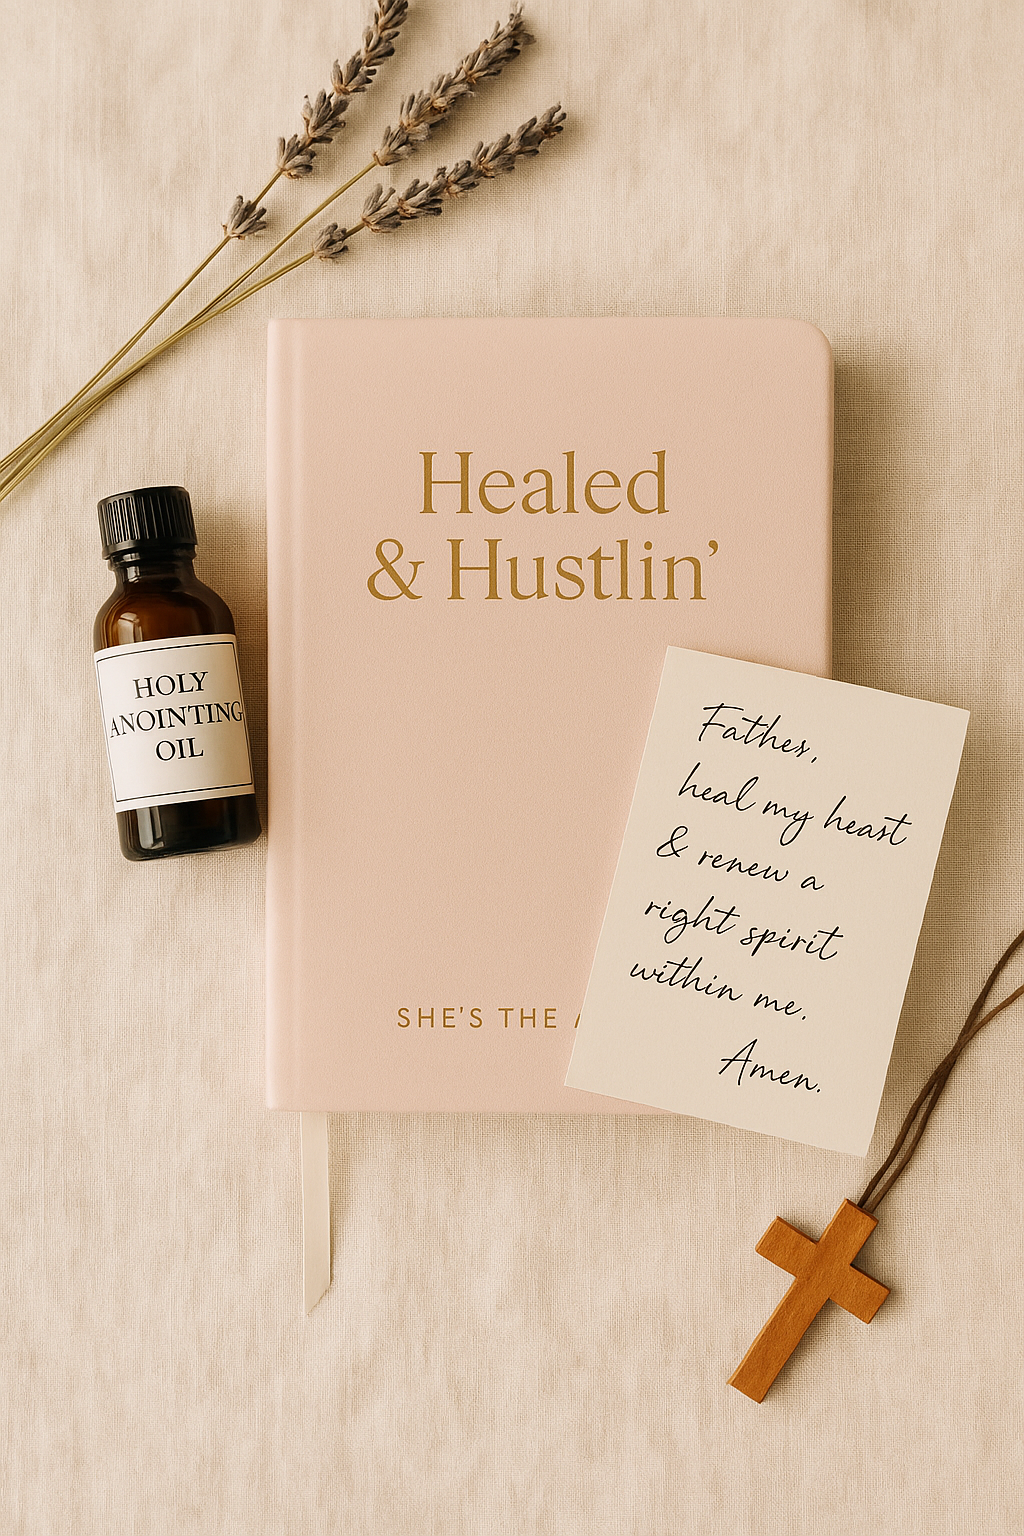 Healed
& Hustlin’
HOLY
ANOINTING
OIL
Father,
heal my heart
& renew a
right spirit
within me.
Amen.
SHE’S THE